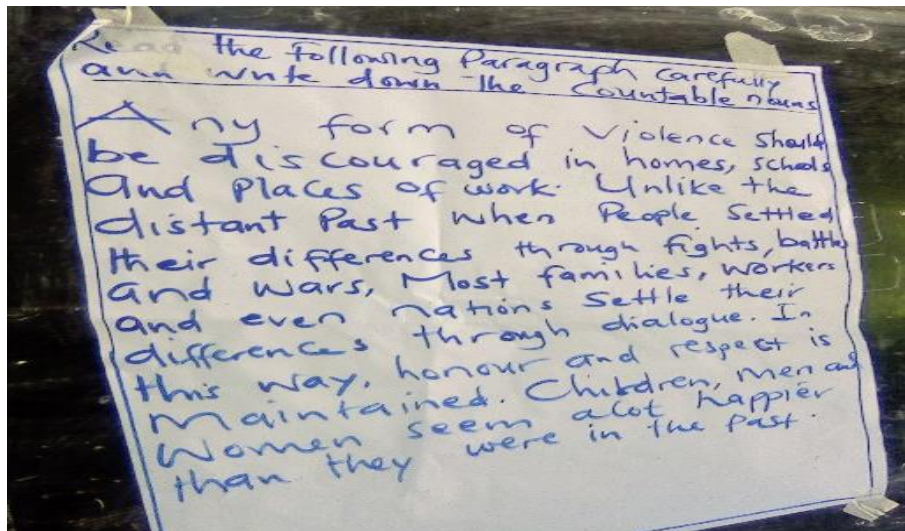 Read the Following Paragraph carefully
and write down the Countable nouns
Any form of violence should
be discouraged in homes, schools
and places of work. Unlike the
distant Past when People Settled
their differences through fights, battles
and wars, Most families, workers
and even nations Settle their
differences through dialogue. In
this way, honour and respect is
Maintained. Children, men and
Women seem alot happier
than they were in the Past.